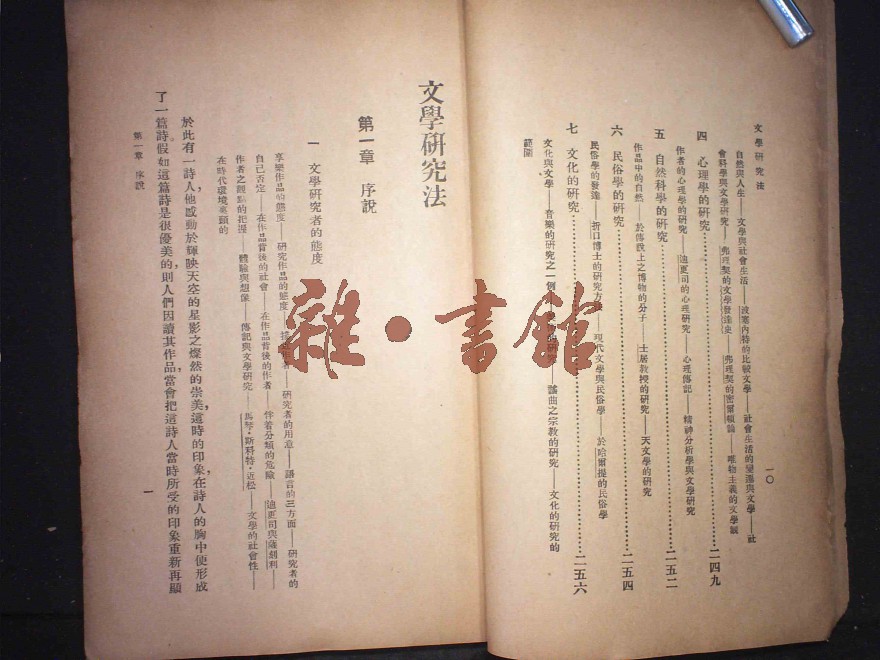 文學研究法
一〇
自然與人生——文學與社會生活——波塞內特的比較文學——社會生活的變遷與文學——社
會科學與文學研究——弗理契的文學發達史——弗理契的密爾頓論——唯物主義的文學觀
四 心理學的研究…………二四九
作者的心理學的研究——迭更司的心理研究——心理傳記——精神分析學與文學研究
五 自然科學的研究…………二五二
作品中的自然——於傳說上之博物的分子——土居教授的研究——天文學的研究
六 民俗學的研究…………二五四
民俗學的發達——折口博士的研究方——現代文學與民俗學——於哈爾提的民俗學
七 文化的研究…………二五六
文化與文學——音樂的研究之一例——謠曲之宗教的研究——文化的研究的
範圍
文學研究法
第一章 序說
一 文學研究者的態度
享樂作品的態度——研究作品的態度——者——研究者的用意——語言的三方面——研究者的
自己否定——在作品背後的社會——在作品背後的作者——伴着分類的危險——迭更司與薩刻利——
作者之觀點的把握——體驗與想像——傳記與文學研究——馬琴·斯科特·近松——文學的社會性——
在時代環境意識的
於此有一詩人,他感動於輝映天空的星影之燦然的崇美,這時的印象,在詩人的胸中便形成
了一篇詩。假如這篇詩是很優美的,則人們因讀其作品,當會把這詩人當時所受的印象重新再顯
第一章 序說
一
雜·書館